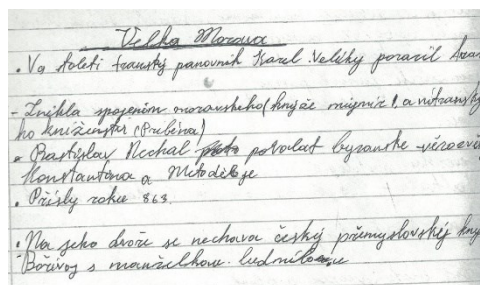 Velka Morava
• Va století franský panovník Karel Veliký porazil Avar
- Znikla spojením moravskeho (knyžče mojmír I, a nitransky
ho knižectví (Pribina)
• Rastislav Nechal povolat byzanske věrozvě
Konstantina a Metoděje
• Přišly roku 863.
• Na jeho dvoře se nechava český přemyslovský kny
Bořivoj s manželkou ludmilou